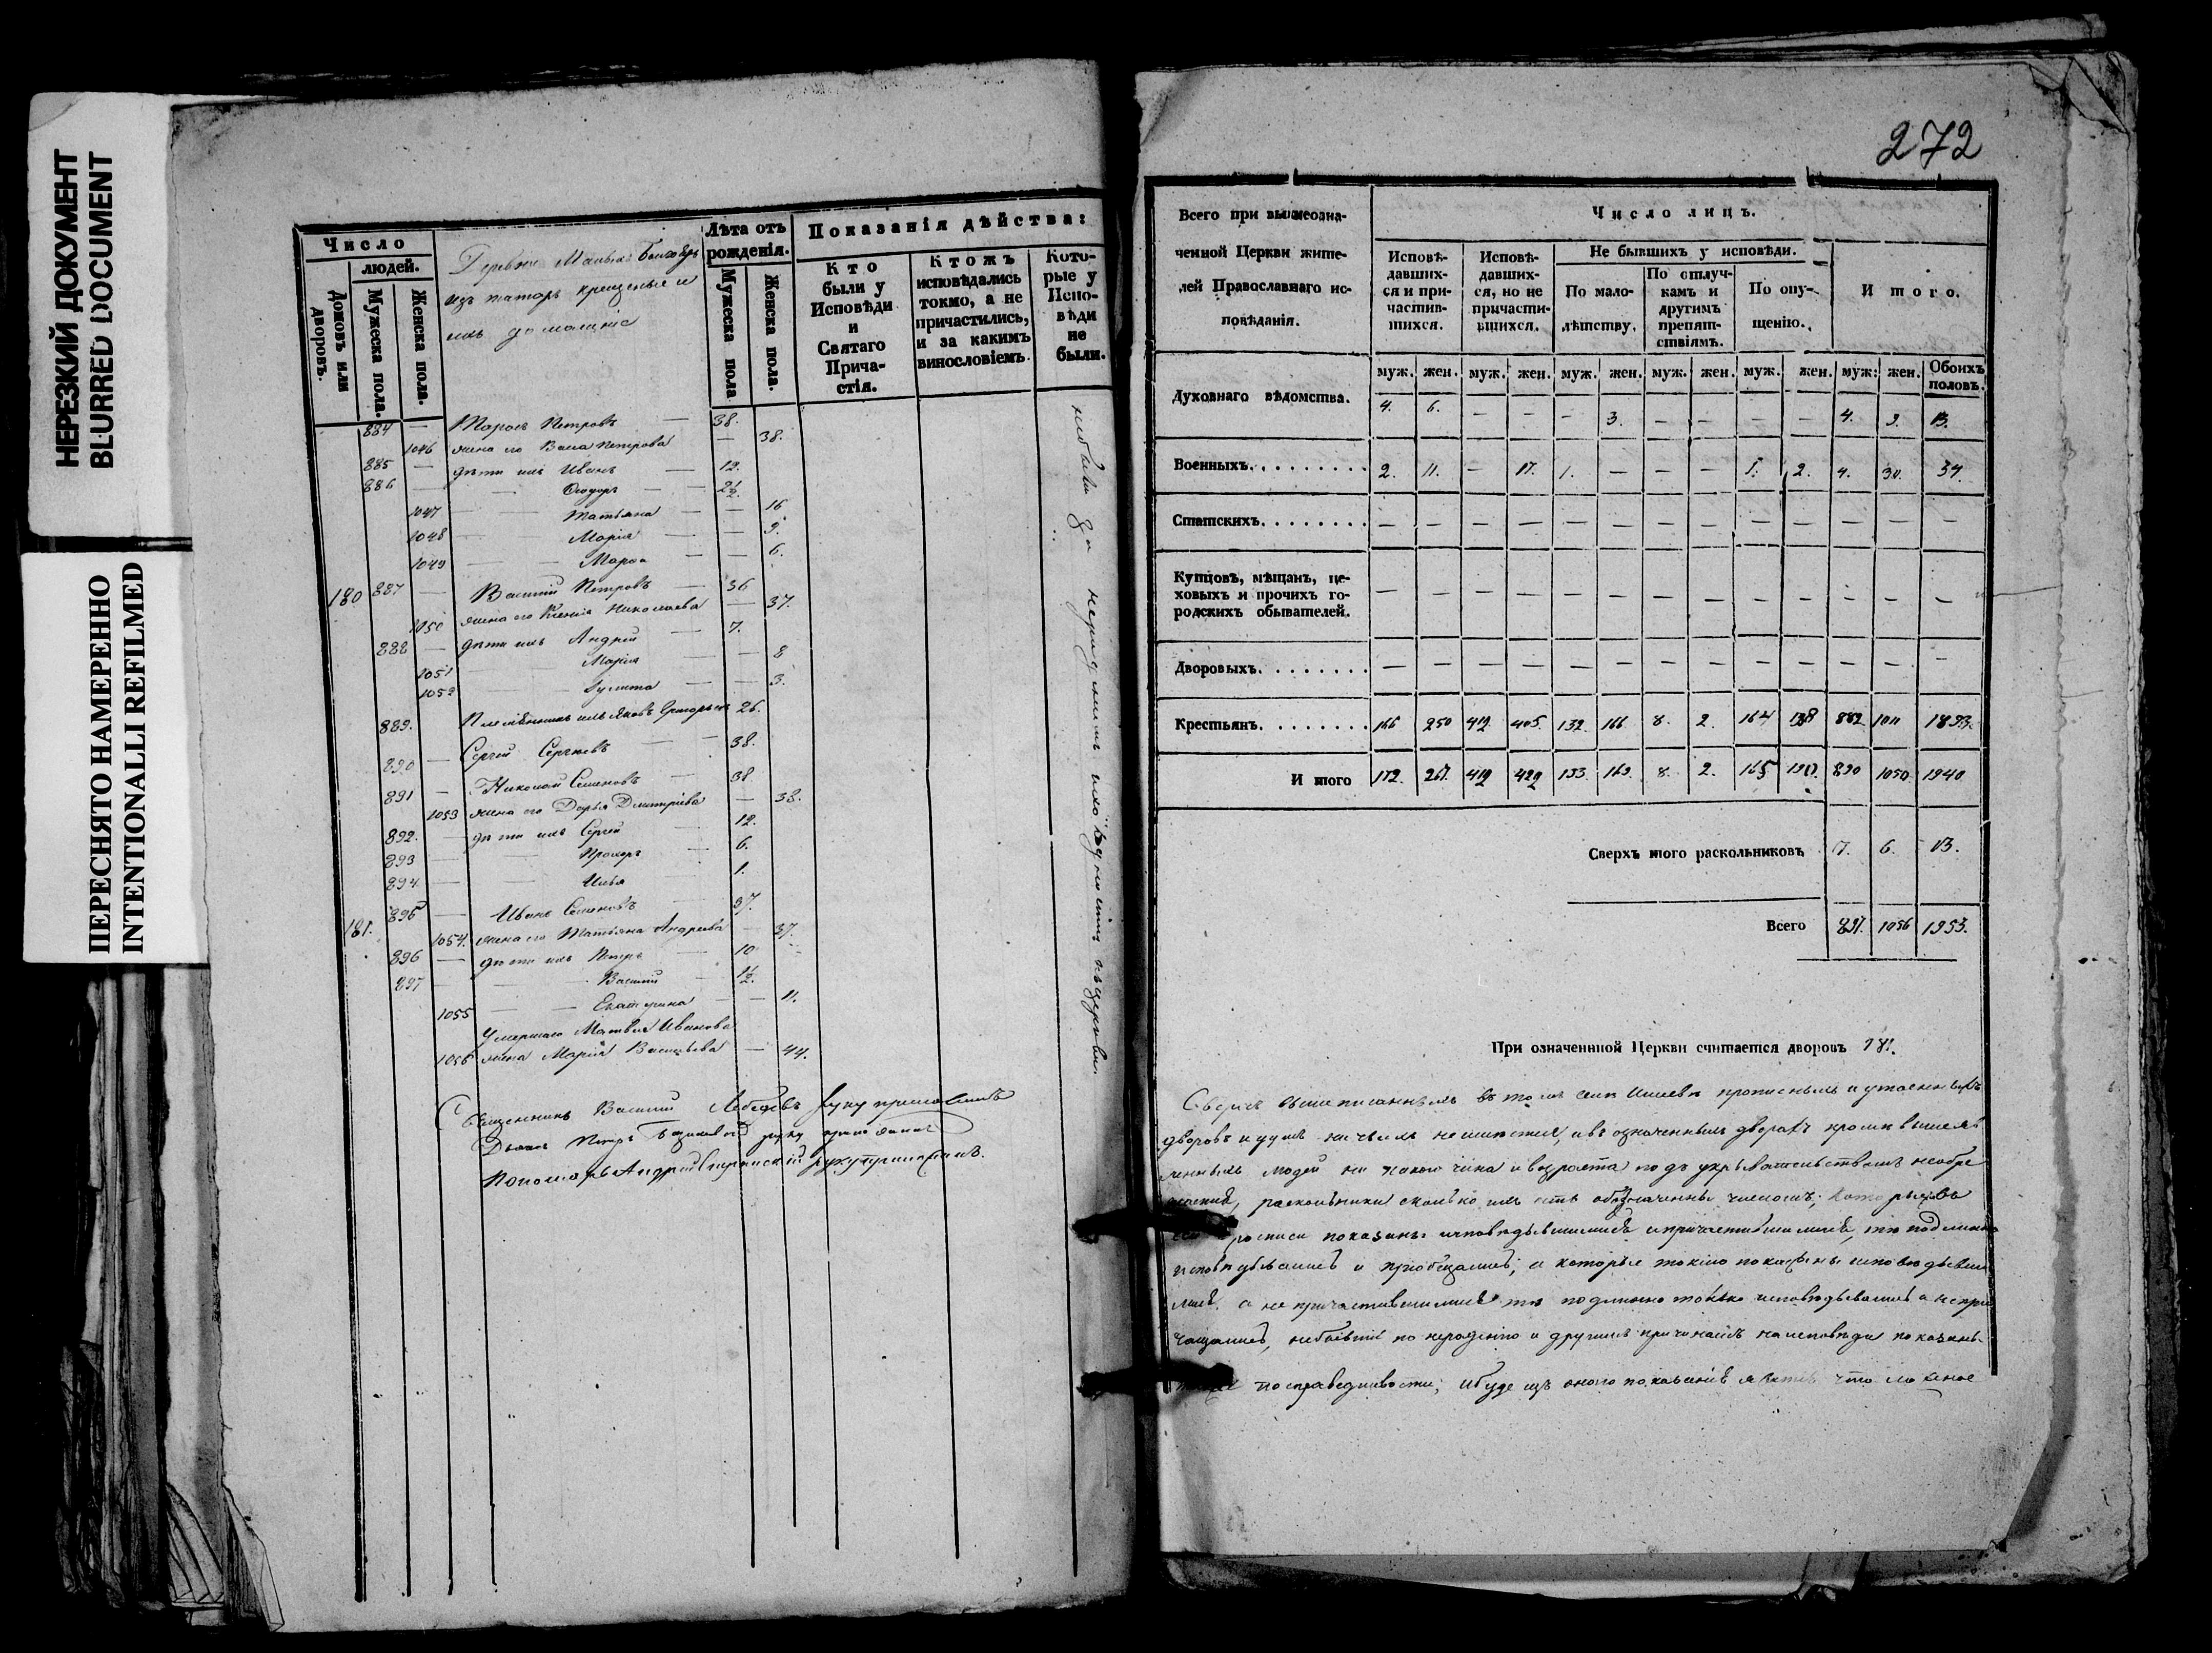 НЕРЕЗКИЙ ДОКУМЕНТ
BLURRED DOCUMENT
ПЕРЕСНЯТО НАМЕРЕННО
INTENTIONALLI REFILMED
Число
людей.
Домовъ или дворовъ.
Мужеска пола.
Женска пола.
Деревни Малыхъ
изъ татаръ крещеные и
ихъ домашніе
Лѣта отъ рожденія.
Мужеска пола
Женска пола.
Показанія дѣйства:
Кто были у Исповѣди и Святаго Причастія.
Ктожъ исповѣдались токмо, а не причастились, и за какимъ винословіемъ.
Которые у Исповѣди не были.
884 — Петровъ — 38.
1046 жена его Петрова — 38.
885 — дѣти ихъ Иванъ — 12.
886 — Ѳеодоръ — 2½
1047 — Татьяна — 16
1048 — Марія — 9.
1049 — — 6.
180 887 — Василій Петровъ — 36
1050 жена его Ксенія Николаева — 37.
888 — дѣти ихъ Андрей — 7.
1051 — Марія — 8
1052 — — 3.
889. Племянникъ ихъ Яковъ Григорьевъ 26.
890 — Сергей Сергеевъ — 38.
891 — Николай Семеновъ — 38
1053 жена его Дарья Дмитріева — 38.
892. — дѣти ихъ Сергей — 12.
893 — Прохоръ — 6.
894. — Илья — 1.
181. 895 — Иванъ Семеновъ — 37.
1054. жена его Татьяна Андреева — 37.
896 — дѣти ихъ Петръ — 10
897 — Василий — 1½.
1055 — Екатерина — 11.
Умершаго Матвея Иванова
1056 жена Марія Васильева — 44.
Священникъ Василий Лебедевъ руку приложилъ
Дьяконъ Петръ руку приложилъ
Пономарь Андрей руку приложилъ.
не были за нерадѣніемъ ихъ къ церкви.
272
Всего при вышеозначенной Церкви жителей Православнаго исповѣданія.
Число лицъ.
Исповѣдавшихся и причастившихся.
Исповѣдавшихся, но не причастившихся.
Не бывшихъ у исповѣди.
По малолѣтству.
По отлучкамъ и другимъ препятствіямъ.
По опущенію.
Итого.
муж. жен. муж. жен. муж. жен. муж. жен. муж. жен. муж. жен. Обоихъ половъ.
Духовнаго вѣдомства. 4. 6. — — — 3. — — — — 4. 9. 13.
Военныхъ. 2. 11. — 17. 1. — — — 1. 2. 4. 30. 34.
Статскихъ. — — — — — — — — — — — — —
Купцовъ, мѣщанъ, цеховыхъ и прочихъ городскихъ обывателей. — — — — — — — — — — — — —
Дворовыхъ. — — — — — — — — — — — — —
Крестьянъ. 166 250 419 405. 132. 166 8. 2. 164 188 882 1011 1893.
И того 172. 267. 419 429 133. 169. 8. 2. 165 190. 890 1050 1940
Сверхъ того раскольниковъ 7. 6. 13.
Всего 897. 1056 1953.
При означенной Церкви считается дворовъ 181.
Сверхъ вышеписанныхъ въ томъ селѣ прописныхъ и утаенныхъ
дворовъ и душъ ни чьихъ не имѣется, и въ означенныхъ дворахъ кромѣ вышеяв
ленныхъ людей ни какого чина и возраста подъ укрывательствомъ необре
раскольники сколько ихъ есть обозначены числомъ; которые въ
росписи показаны исповѣдывшимися и причастившимися, тѣ подлинно
исповѣдывались и приобщались, а которые токмо показаны исповѣдывши
мися, а не причастившимися тѣ подлинно токмо исповѣдывались а непри
чащались, небывшіе по нерадѣнію и другимъ причинамъ на исповѣди показаны
по справедливости; и буде изъ оного показанія явится что ложное